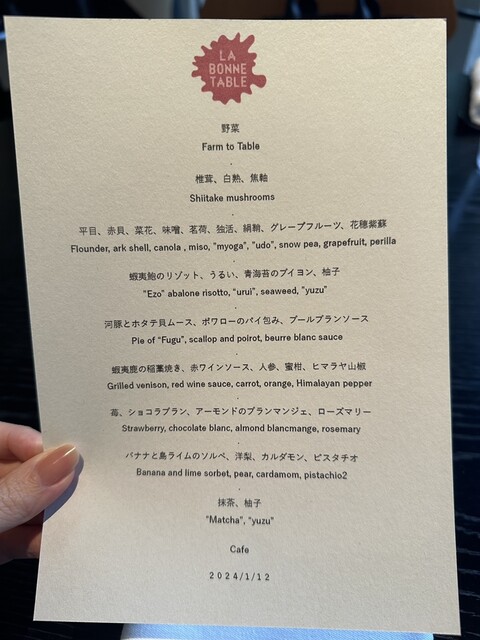 LA
BONNE
TABLE
野菜
Farm to Table
椎茸、白熟、焦軸
Shiitake mushrooms
平目、赤貝、菜花、味噌、茗荷、独活、絹鞘、グレープフルーツ、花穂紫蘇
Flounder, ark shell, canola , miso, "myoga", "udo", snow pea, grapefruit, perilla
蝦夷鮑のリゾット、うるい、青海苔のブイヨン、柚子
"Ezo" abalone risotto, "urui", seaweed, "yuzu"
河豚とホタテ貝ムース、ポワローのパイ包み、ブールブランソース
Pie of "Fugu", scallop and poirot, beurre blanc sauce
蝦夷鹿の稲藁焼き、赤ワインソース、人参、蜜柑、ヒマラヤ山椒
Grilled venison, red wine sauce, carrot, orange, Himalayan pepper
苺、ショコラブラン、アーモンドのブランマンジェ、ローズマリー
Strawberry, chocolate blanc, almond blancmange, rosemary
バナナと島ライムのソルベ、洋梨、カルダモン、ピスタチオ
Banana and lime sorbet, pear, cardamom, pistachio2
抹茶、柚子
"Matcha", "yuzu"
Cafe
2024/1/12